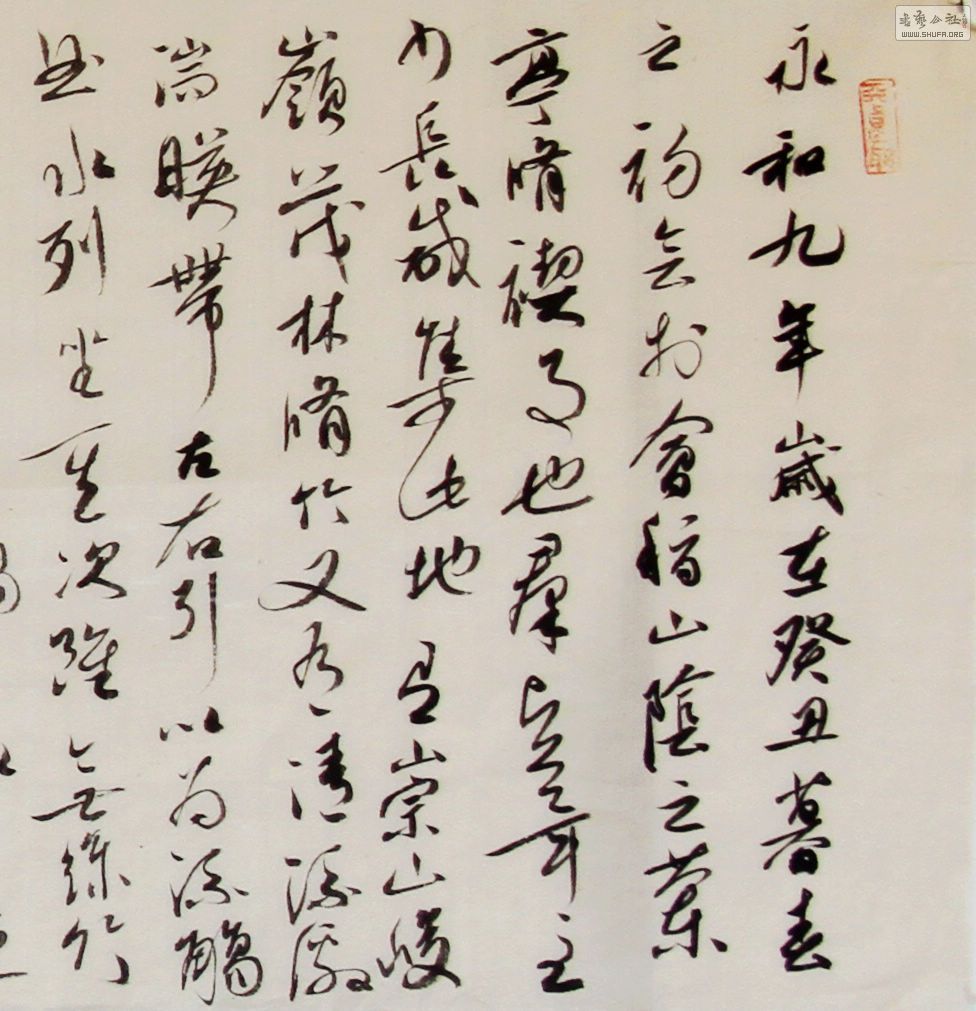 永和九年歲在癸丑暮春
之初会於會稽山陰之蘭
亭脩禊事也羣賢畢至
少長咸集此地有崇山峻
嶺茂林脩竹又有清流激
湍暎帶左右引以為流觴
曲水列坐其次雖無絲竹
書藝公社
WWW.SHUFA.ORG